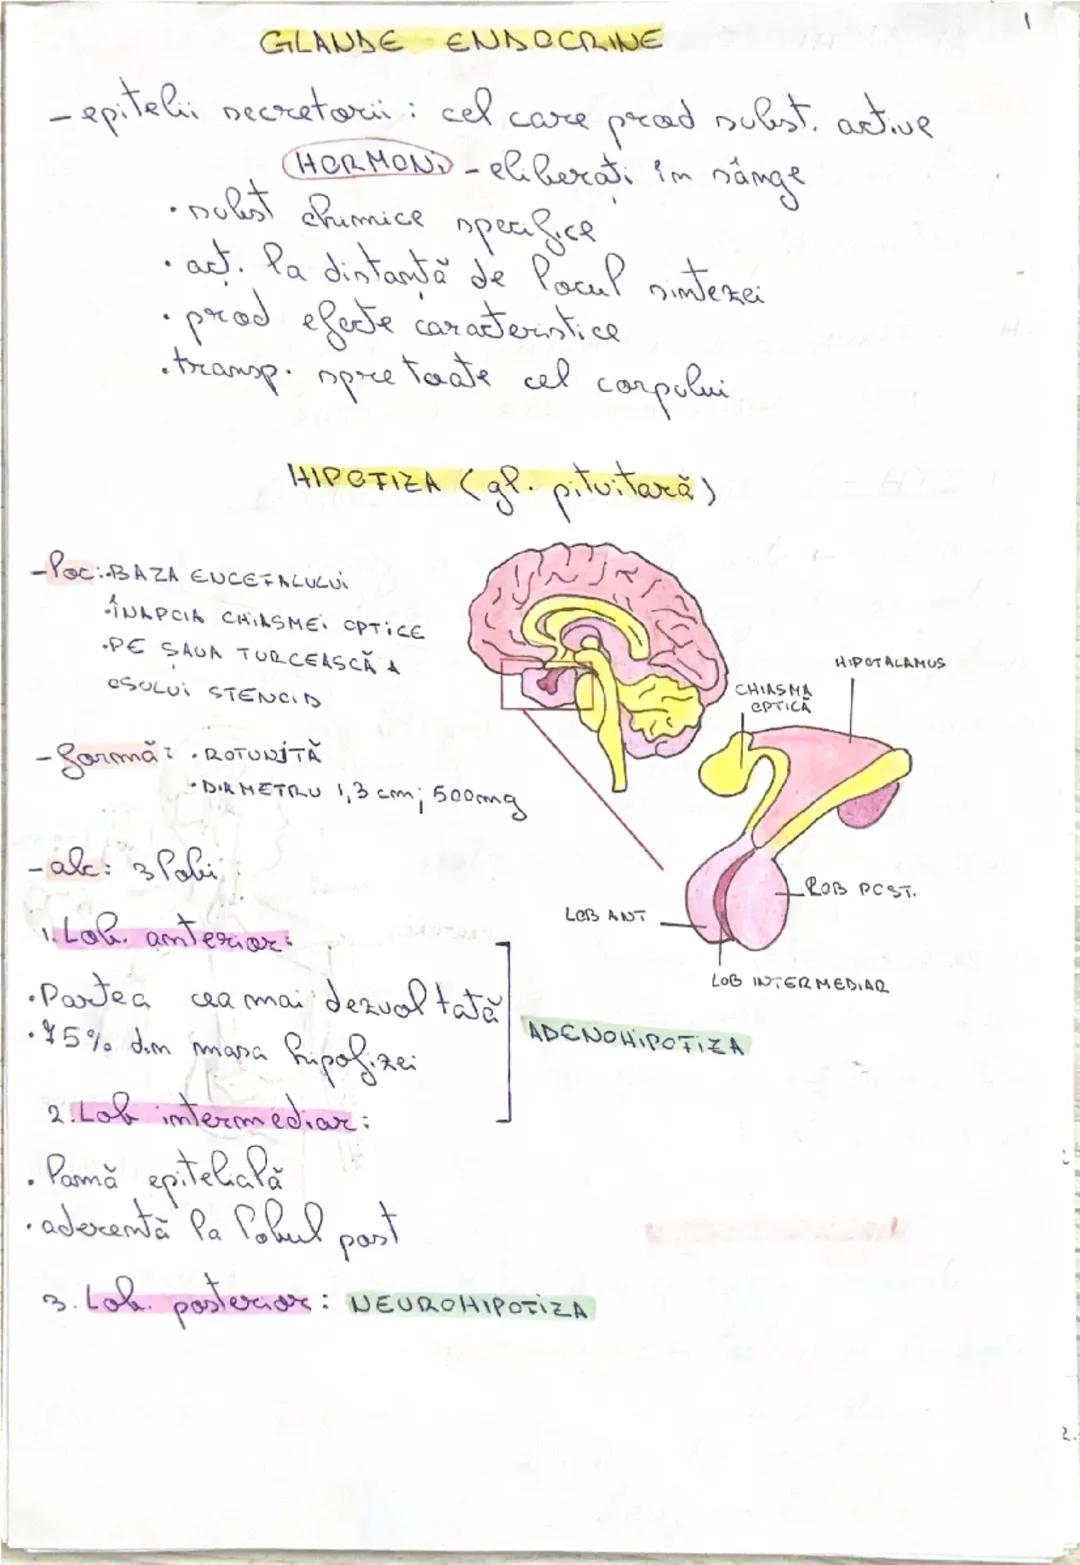 1
GLANDE ENDOCRINE
- epitelii secretorii : cel care prod subst. active
HORMONI - eliberați în sânge
• subst chimice specifice
• acț. la distanță de locul sintezei
• prod efecte caracteristice
• transp. spre toate cel corpului
HIPOFIZA (gl. pituitară)
- loc: • BAZA ENCEFALULUI
• ÎNAPOIA CHIASMEI OPTICE
• PE ȘAUA TURCEASCĂ A
OSULUI SFENOID
- formă: • ROTUNJITĂ
• DIAMETRU 1,3 cm; 500mg
- alc: 3 lobi
HIPOTALAMUS
CHIASMA
OPTICĂ
LOB POST.
LOB ANT
LOB INTERMEDIAR
1. Lob. anterior:
• Partea cea mai dezvoltată
• 75% din masa hipofizei
ADENOHIPOFIZA
2. Lob intermediar:
• lamă epitelială
• aderentă la lobul post
3. Lob. posterior: NEUROHIPOFIZA
2.